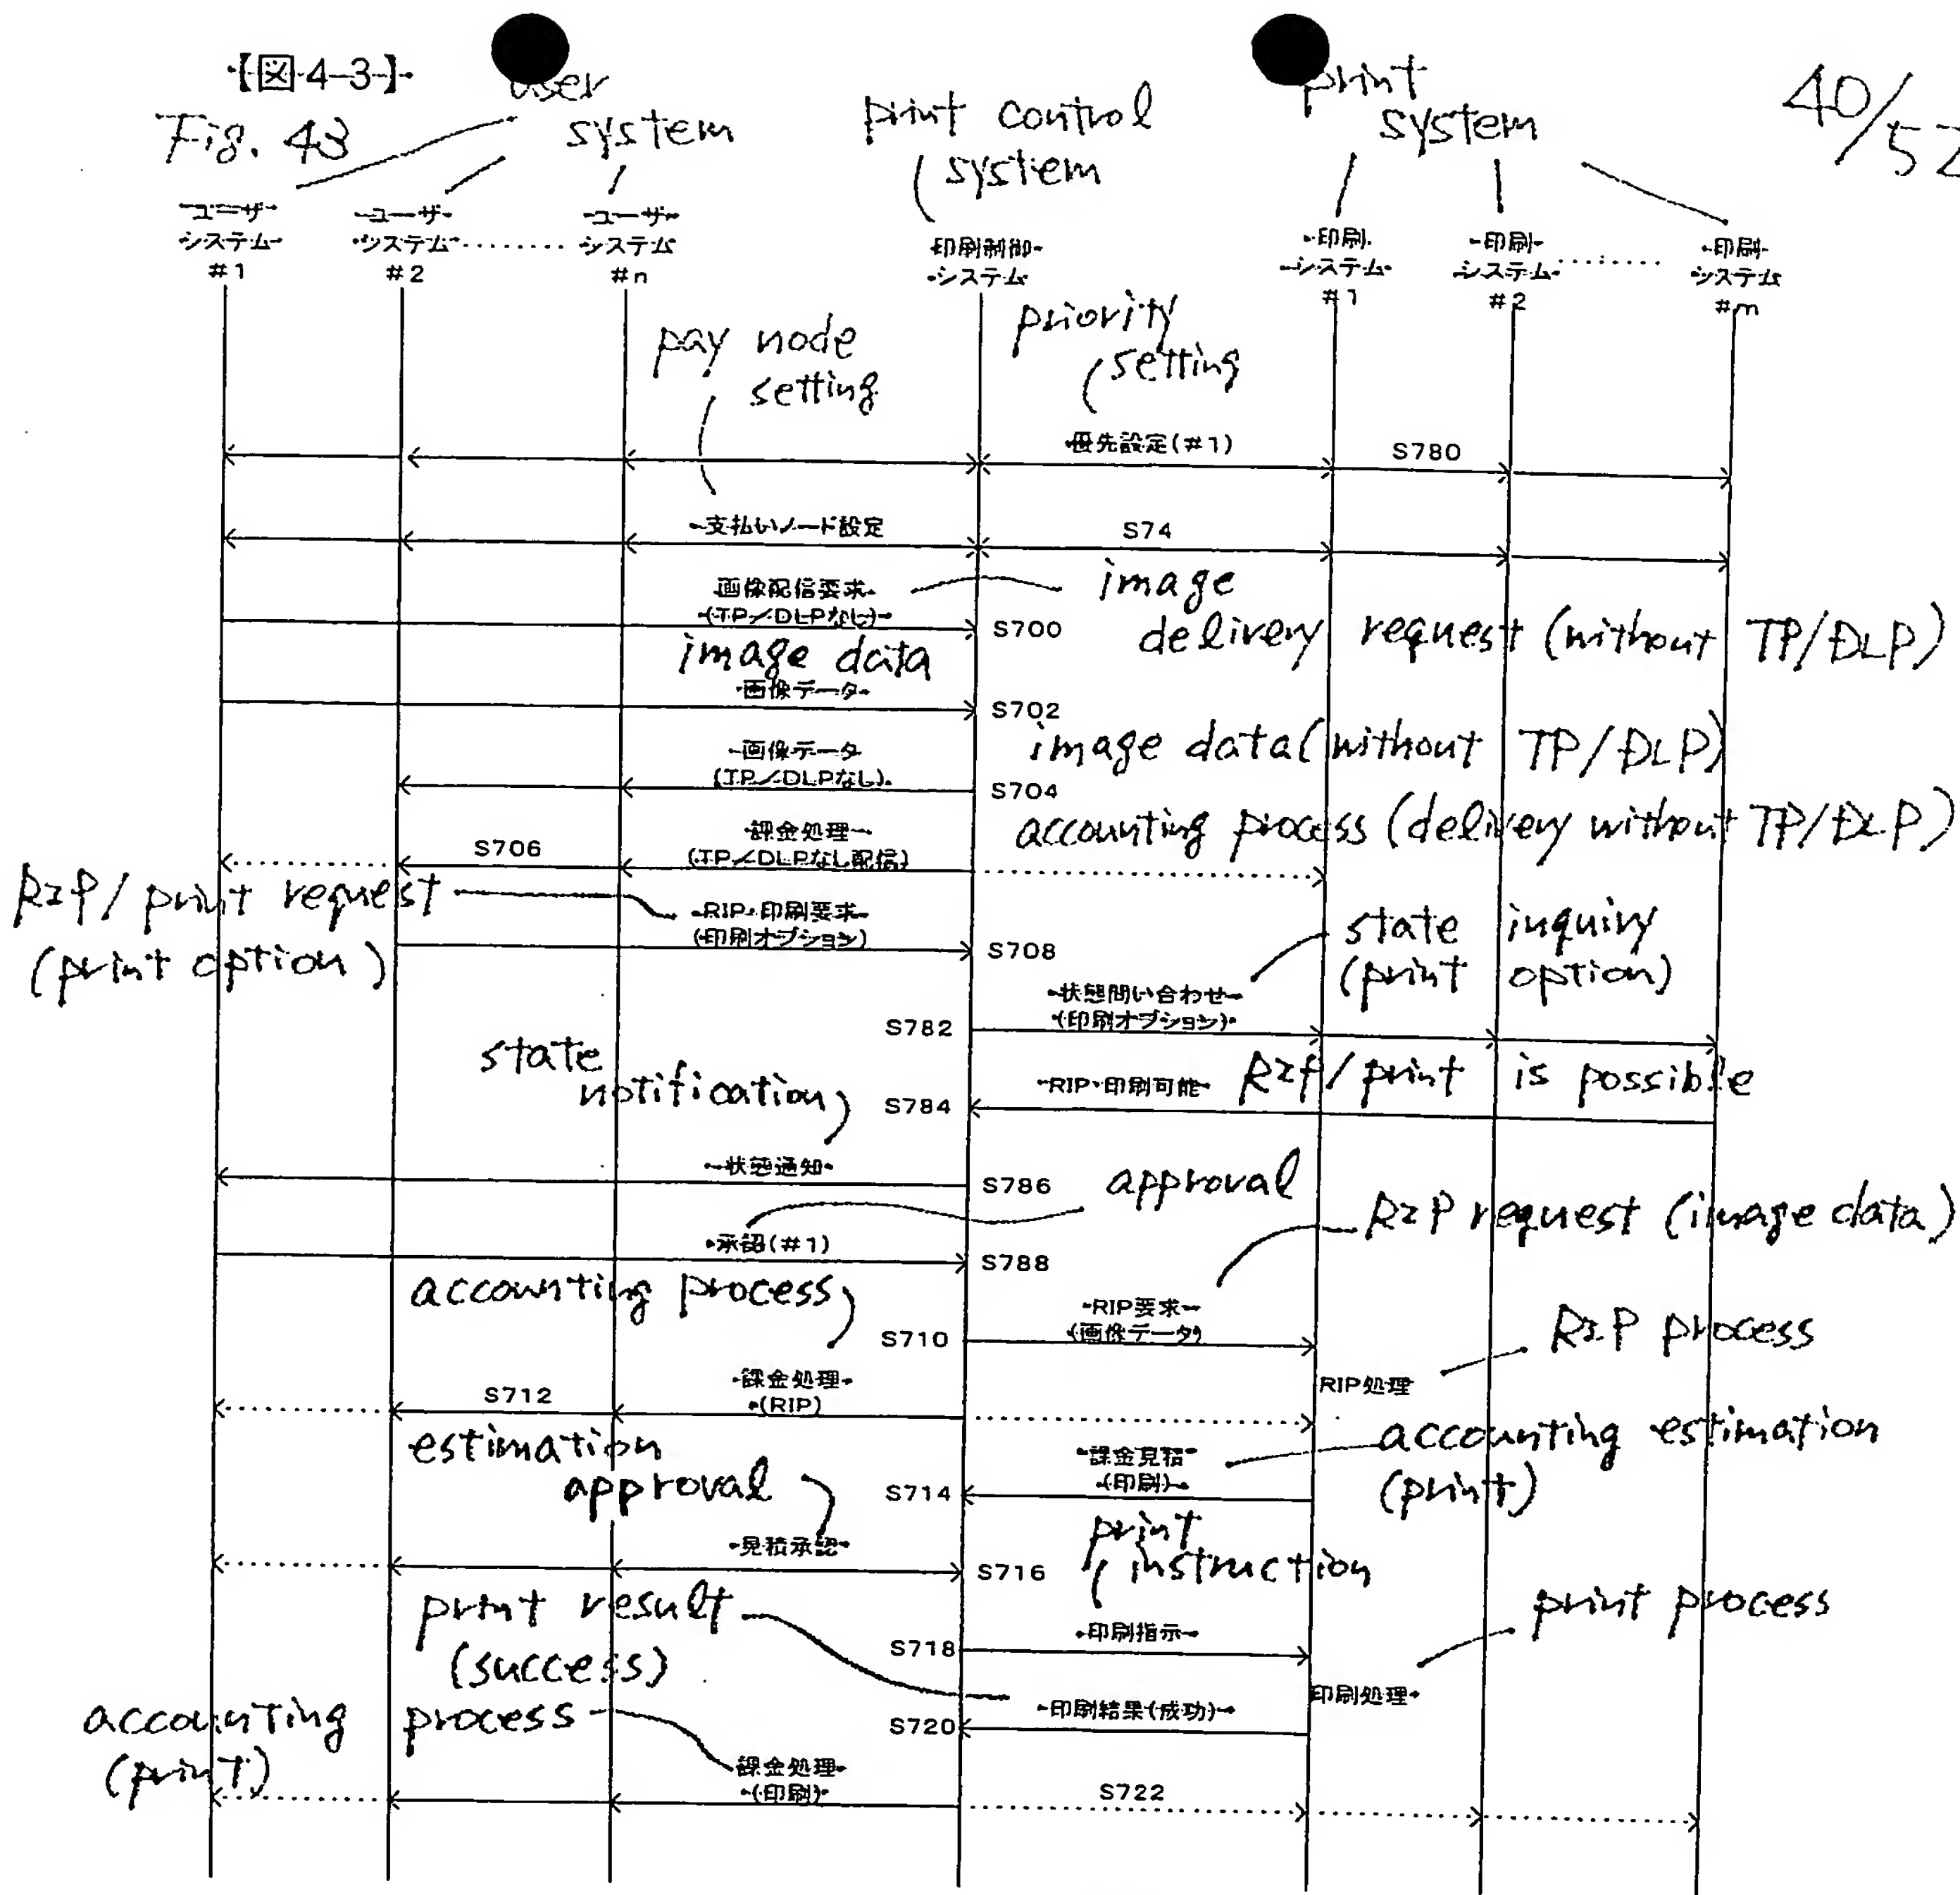 【図43】
Fig. 43
user
system
print control
system
print
system
40/52
ユーザ
システム
#1
ユーザ
システム
#2
ユーザ
システム
#n
印刷制御
システム
印刷
システム
#1
印刷
システム
#2
印刷
システム
#m
pay node
setting
priority
setting
優先設定(#1)
S780
支払いノード設定
S74
画像配信要求
(TP/DLPなし)
S700
image
delivery request (without TP/DLP)
image data
画像データ
S702
画像データ
(TP/DLPなし)
S704
image data (without TP/DLP)
課金処理
(TP/DLPなし配信)
S706
accounting process (delivery without TP/DLP)
RIP/print request
(print option)
RIP・印刷要求
(印刷オプション)
S708
state inquiry
(print option)
状態問い合わせ
(印刷オプション)
S782
state
notification
RIP・印刷可能
S784
RIP/print is possible
状態通知
S786
approval
承認(#1)
S788
RIP request (image data)
accounting process
RIP要求
(画像データ)
S710
RIP process
RIP処理
課金処理
(RIP)
S712
estimation
approval
課金見積
(印刷)
S714
accounting estimation
(print)
見積承認
S716
print
instruction
print result
(success)
印刷指示
S718
print process
印刷処理
印刷結果(成功)
S720
accounting process
(print)
課金処理
(印刷)
S722